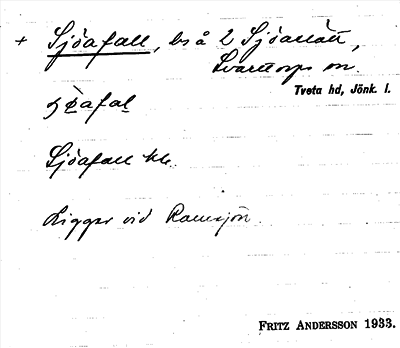 + Sjöafall, bs å 2 Sjöanäs,
Svarttorps sn.
Tveta hd, Jönk. l.
Sjöafall
Ligger vid Ramsjön
FRITZ ANDERSSON 1933.